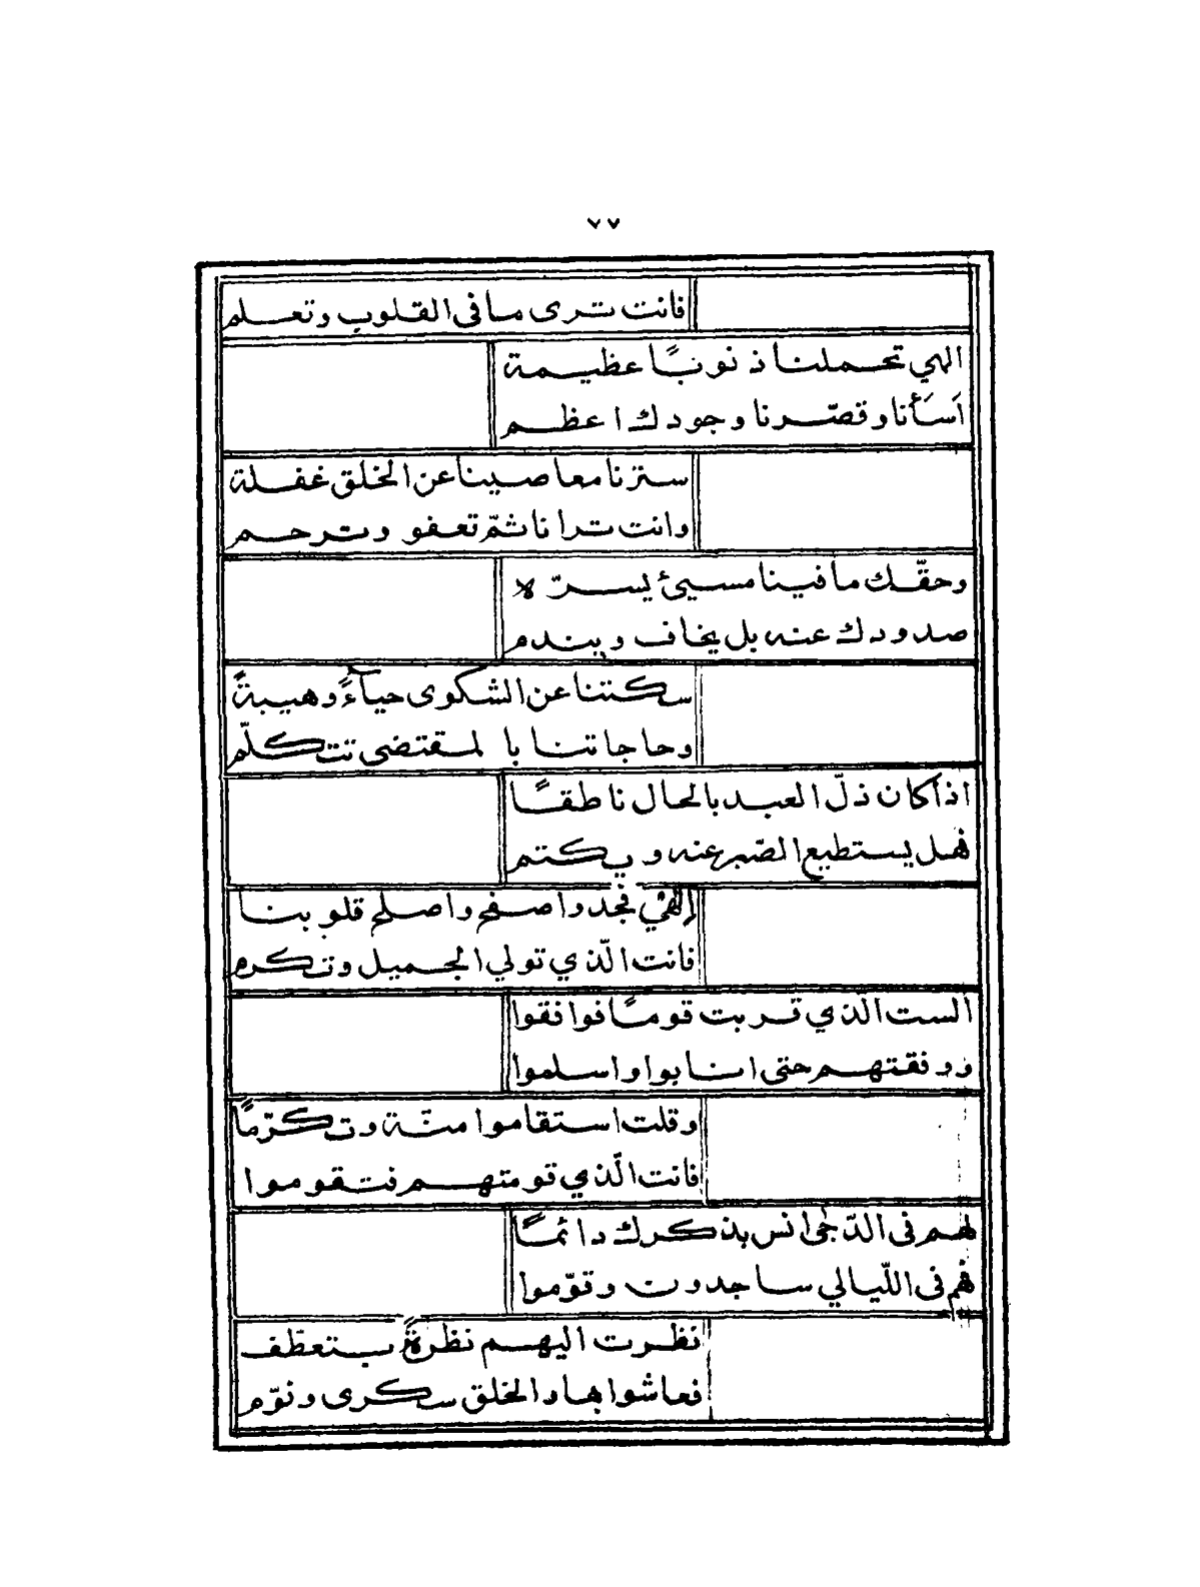 ٧٧
فانت ترى ما فى القلوب وتعلم
الهي تحملنا ذنوبًا عظيمة
اَسَأنا وقصّرنا وجودك اعظم
سترنا معاصينا عن الخلق غفلة
وانت ترانا ثمّ تعفو وترحم
وحقّك ما فينا مسيئ يسرّ لا
صدودك عنه بل يخاف ويندم
سكتنا عن الشكوى حياءً وهيبةً
وحاجاتنا بالمقتضى تتكلّم
اذا كان ذلّ العبد بالحال ناطقًا
فهل يستطيع الصّبر عنه ويكتم
إلهي فجد واصفح واصلح قلوبنا
فانت الّذي تولي الجميل وتكرم
الست الذي قربت قومًا فوافقوا
ووفقتهم حتى انابوا واسلموا
وقلت استقاموا منّة وتكرّمًا
فانت الّذي قومتهم فتقوموا
لهم فى الدّجى انس بذكرك دائمًا
فهم فى اللّيالي ساجدون وقوّموا
نظرت اليهم نظرةً بتعطّف
فعاشوا بها والخلق سكرى ونوّم